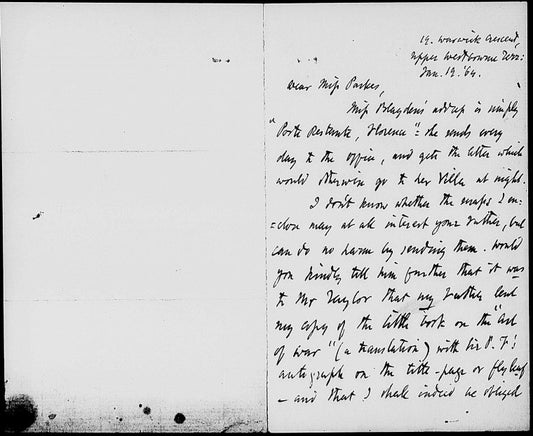 19. Warwick Crescent,
Upper Westbourne Terr:
Jan. 19. '64.
Dear Miss Parkes,
Miss Blagden's address is simply
"Poste Restante, Florence": she sends every
day to the office, and gets the letter which
would otherwise go to her Villa at night.
I don't know whether the scraps I en:
=close may at all interest your Father, but
can do no harm by sending them. Would
you kindly tell him further that it was
to Mr Taylor that my Father lent
my copy of the little book on the "Art
of War" (a translation) with Sir P. F's
autograph on the title-page or flyleaf
- and that I shall indeed be obliged